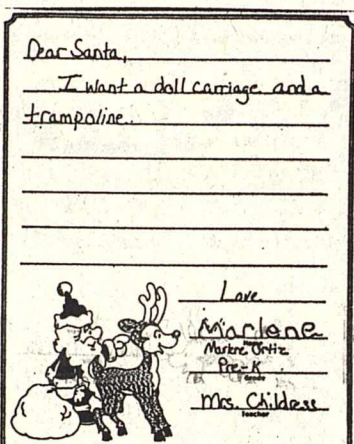 Dear Santa,
I want a doll carriage and a
trampoline.
Love
Marlene
Name
Marlene Ortiz
Pre-K
Grade
Mrs. Childress
Teacher